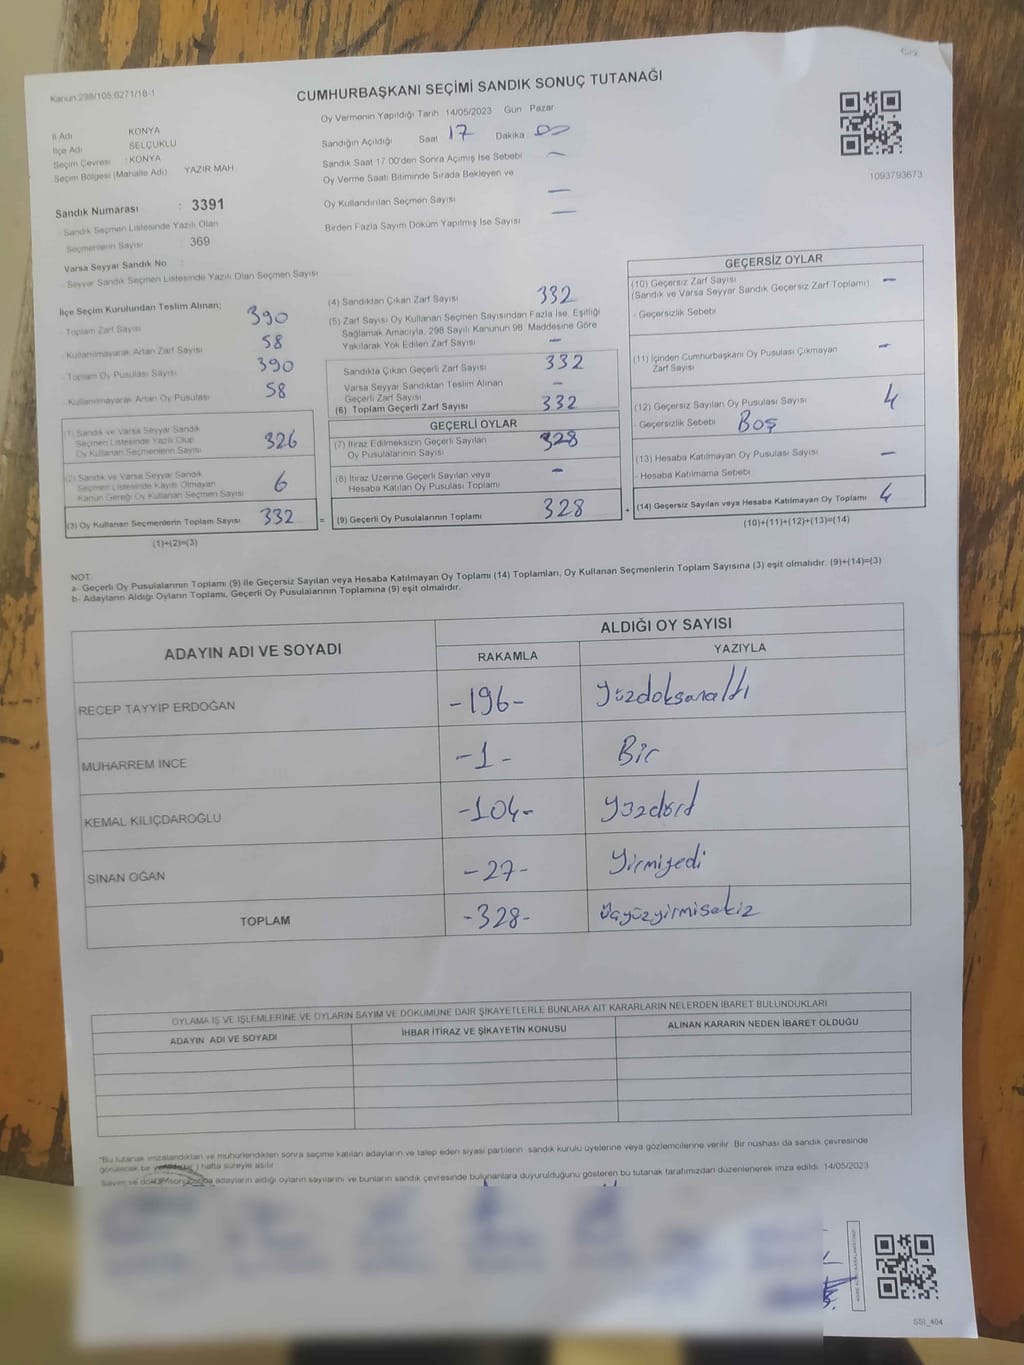 Kanun 298/105,6271/18-1
CUMHURBAŞKANI SEÇİMİ SANDIK SONUÇ TUTANAĞI
İl Adı KONYA
İlçe Adı SELÇUKLU
Seçim Çevresi : KONYA
Seçim Bölgesi (Mahalle Adı) YAZIR MAH
Oy Vermenin Yapıldığı Tarih 14/05/2023 Gün Pazar
Sandığın Açıldığı Saat 17 Dakika 00
Sandık Saat 17:00'den Sonra Açılmış İse Sebebi —
Oy Verme Saati Bitiminde Sırada Bekleyen ve
Oy Kullandırılan Seçmen Sayısı —
Birden Fazla Sayım Döküm Yapılmış İse Sayısı —
1093793673
Sandık Numarası : 3391
Sandık Seçmen Listesinde Yazılı Olan
Seçmenlerin Sayısı : 369
Varsa Seyyar Sandık No
- Seyyar Sandık Seçmen Listesinde Yazılı Olan Seçmen Sayısı
İlçe Seçim Kurulundan Teslim Alınan;
- Toplam Zarf Sayısı 390
- Kullanılmayarak Artan Zarf Sayısı 58
- Toplam Oy Pusulası Sayısı 390
- Kullanılmayarak Artan Oy Pusulası 58
(1) Sandık ve Varsa Seyyar Sandık
Seçmen Listesinde Yazılı Olup
Oy Kullanan Seçmenlerin Sayısı 326
(2) Sandık ve Varsa Seyyar Sandık
Seçmen Listesinde Kayıtlı Olmayan
Kanun Gereği Oy Kullanan Seçmen Sayısı 6
(3) Oy Kullanan Seçmenlerin Toplam Sayısı 332 =
(1)+(2)=(3)
(4) Sandıktan Çıkan Zarf Sayısı 332
(5) Zarf Sayısı Oy Kullanan Seçmen Sayısından Fazla İse, Eşitliği
Sağlamak Amacıyla, 298 Sayılı Kanunun 98. Maddesine Göre
Yakılarak Yok Edilen Zarf Sayısı —
Sandıkta Çıkan Geçerli Zarf Sayısı 332
Varsa Seyyar Sandıktan Teslim Alınan
Geçerli Zarf Sayısı —
(6) Toplam Geçerli Zarf Sayısı 332
GEÇERLİ OYLAR
(7) İtiraz Edilmeksizin Geçerli Sayılan
Oy Pusulalarının Sayısı 328
(8) İtiraz Üzerine Geçerli Sayılan veya
Hesaba Katılan Oy Pusulası Toplamı —
(9) Geçerli Oy Pusulalarının Toplamı 328 +
GEÇERSİZ OYLAR
(10) Geçersiz Zarf Sayısı —
(Sandık ve Varsa Seyyar Sandık Geçersiz Zarf Toplamı)
- Geçersizlik Sebebi
(11) İçinden Cumhurbaşkanı Oy Pusulası Çıkmayan
Zarf Sayısı —
(12) Geçersiz Sayılan Oy Pusulası Sayısı 4
- Geçersizlik Sebebi Boş
(13) Hesaba Katılmayan Oy Pusulası Sayısı —
- Hesaba Katılmama Sebebi
(14) Geçersiz Sayılan veya Hesaba Katılmayan Oy Toplamı 4
(10)+(11)+(12)+(13)=(14)
NOT:
a- Geçerli Oy Pusulalarının Toplamı (9) ile Geçersiz Sayılan veya Hesaba Katılmayan Oy Toplamı (14) Toplamları, Oy Kullanan Seçmenlerin Toplam Sayısına (3) eşit olmalıdır. (9)+(14)=(3)
b- Adayların Aldığı Oyların Toplamı, Geçerli Oy Pusulalarının Toplamına (9) eşit olmalıdır.
ADAYIN ADI VE SOYADI
ALDIĞI OY SAYISI
RAKAMLA YAZIYLA
RECEP TAYYİP ERDOĞAN -196- yüzdoksanaltı
MUHARREM İNCE -1- Bir
KEMAL KILIÇDAROĞLU -104- yüzdört
SİNAN OĞAN -27- yirmiyedi
TOPLAM -328- üçyüzyirmisekiz
OYLAMA İŞ VE İŞLEMLERİNE VE OYLARIN SAYIM VE DÖKÜMÜNE DAİR ŞİKAYETLERLE BUNLARA AİT KARARLARIN NELERDEN İBARET BULUNDUKLARI
ADAYIN ADI VE SOYADI İHBAR İTİRAZ VE ŞİKAYETİN KONUSU ALINAN KARARIN NEDEN İBARET OLDUĞU
"Bu tutanak imzalandıktan ve mühürlendikten sonra seçime katılan adayların ve talep eden siyasi partilerin sandık kurulu üyelerine veya gözlemcilerine verilir. Bir nüshası da sandık çevresinde
görülecek bir hafta süreyle asılır
adayların aldığı oyların sayılarını ve bunların sandık çevresinde bulunanlara duyurulduğunu gösteren bu tutanak tarafımızdan düzenlenerek imza edildi. 14/05/2023
SSI_404